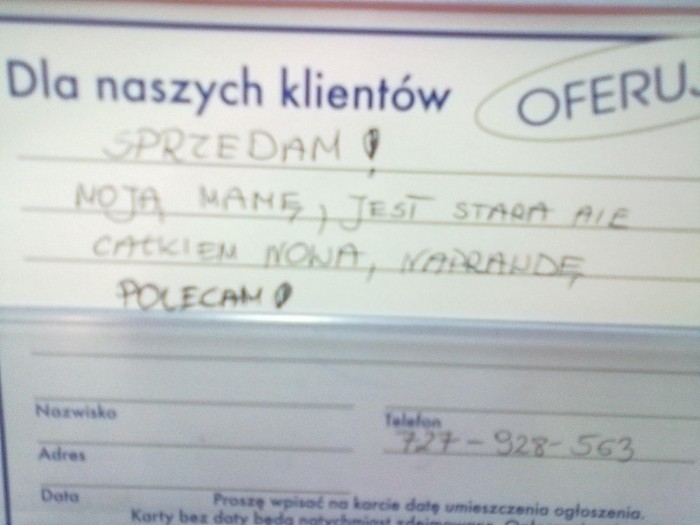 Dla naszych klientów
OFERUJ
SPRZEDAM!
MOJĄ MAMĘ, JEST STARA ALE
CAŁKIEM NOWA, NAPRAWDĘ
POLECAM!
Nazwisko
Telefon
727-928-563
Adres
Data
Proszę wpisać na karcie datę umieszczenia ogłoszenia.
Karty bez daty będą natychmiast zdejmowane.